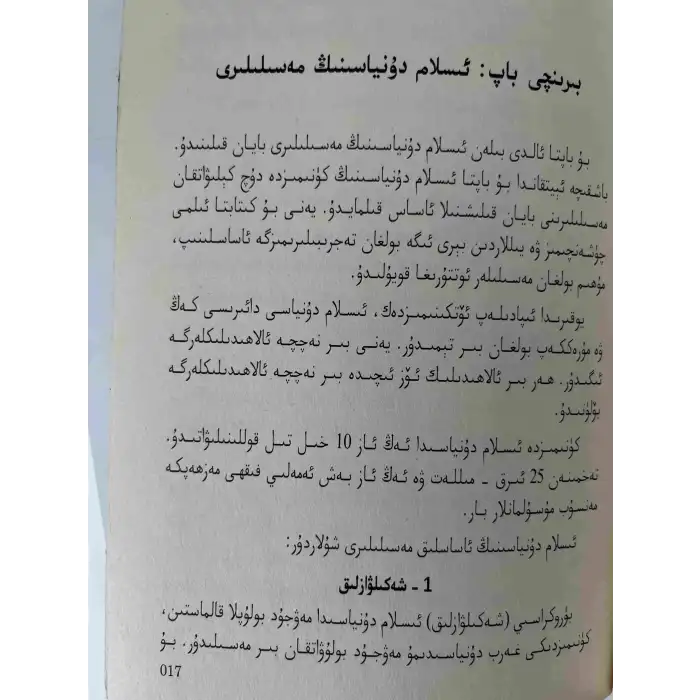 بىرىنچى باپ: ئىسلام دۇنياسىنىڭ مەسىلىلىرى
بۇ باپتا ئالدى بىلەن ئىسلام دۇنياسىنىڭ مەسىلىلىرى بايان قىلىنىدۇ.
باشقىچە ئېيتقاندا بۇ باپتا ئىسلام دۇنياسىنىڭ كۈنىمىزدە دۇچ كېلىۋاتقان
مەسىلىلىرىنى بايان قىلىشنىلا ئاساس قىلمايدۇ. يەنى بۇ كىتابتا ئىلمى
چۈشەنچىمىز ۋە يىللاردىن بېرى ئىگە بولغان تەجرىبىلىرىمىزگە ئاساسلىنىپ،
مۇھىم بولغان مەسىلىلەر ئوتتۇرىغا قويۇلىدۇ.
يۇقىرىدا ئىپادىلەپ ئۆتكىنىمىزدەك، ئىسلام دۇنياسى دائىرىسى كەڭ
ۋە مۇرەككەپ بولغان بىر تېمىدۇر. يەنى بىر نەچچە ئالاھىدىلىكلەرگە
ئىگىدۇر. ھەر بىر ئالاھىدىلىك ئۆز ئىچىدە بىر نەچچە ئالاھىدىلىكلەرگە
بۆلۈنىدۇ.
كۈنىمىزدە ئىسلام دۇنياسىدا ئەڭ ئاز 10 خىل تىل قوللىنىلىۋاتىدۇ.
تەخمىنەن 25 ئىرق - مىللەت ۋە ئەڭ ئاز بەش ئەمەلىي فىقھى مەزھەپكە
مەنسۇپ مۇسۇلمانلار بار.
ئىسلام دۇنياسىنىڭ ئاساسلىق مەسىلىلىرى شۇلاردۇر:
1 - شەكىلۋازلىق
بۈروكراسىي (شەكىلۋازلىق) ئىسلام دۇنياسىدا مەۋجۇد بولۇپلا قالماستىن،
كۈنىمىزدىكى غەرب دۇنياسىدىمۇ مەۋجۇد بولۇۋاتقان بىر مەسىلىدۇر. بۇ
017